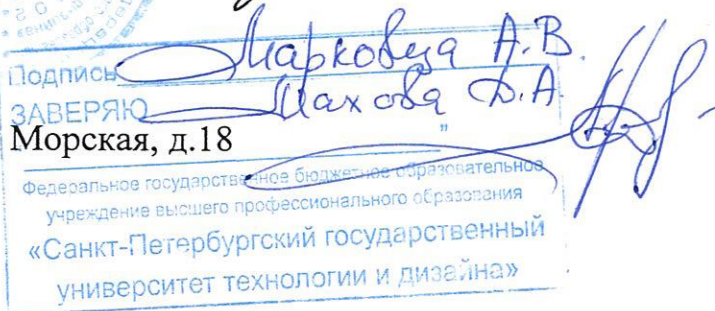 Подпись Марковца А.В.
ЗАВЕРЯЮ Махова Д.А.
Морская, д.18
Федеральное государственное бюджетное образовательное
учреждение высшего профессионального образования
«Санкт-Петербургский государственный
университет технологии и дизайна»